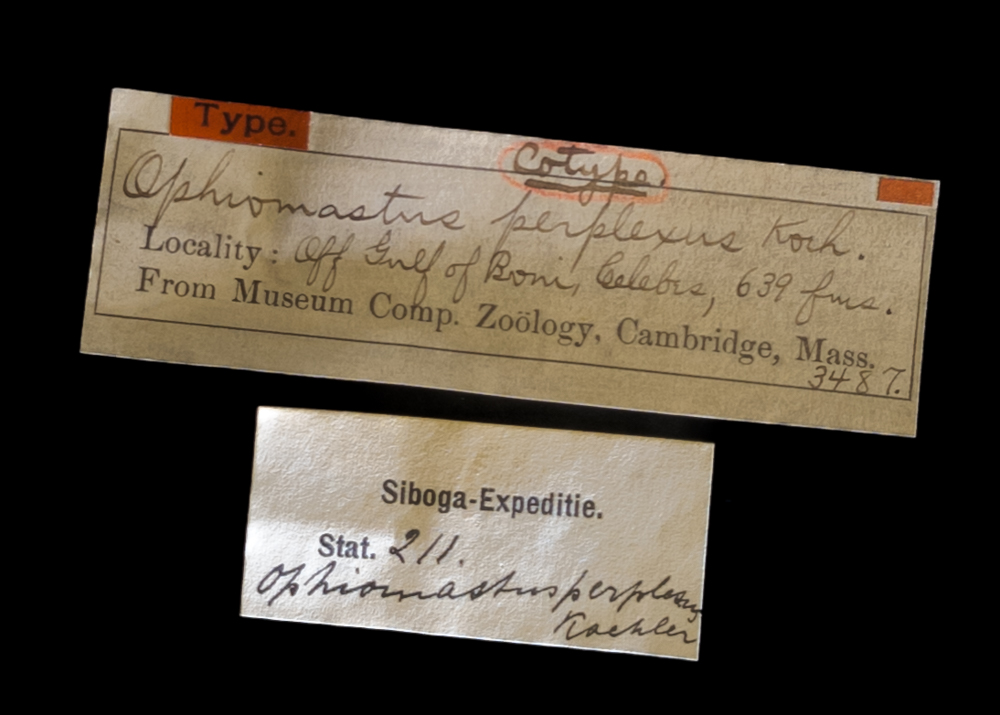 Type.
Cotype
Ophiomastus perplexus Koch.
Locality: Off Gulf of Boni, Celebes, 639 fms.
From Museum Comp. Zoölogy, Cambridge, Mass.
3487.
Siboga-Expeditie.
Stat. 211.
Ophiomastus perplexus
Koehler